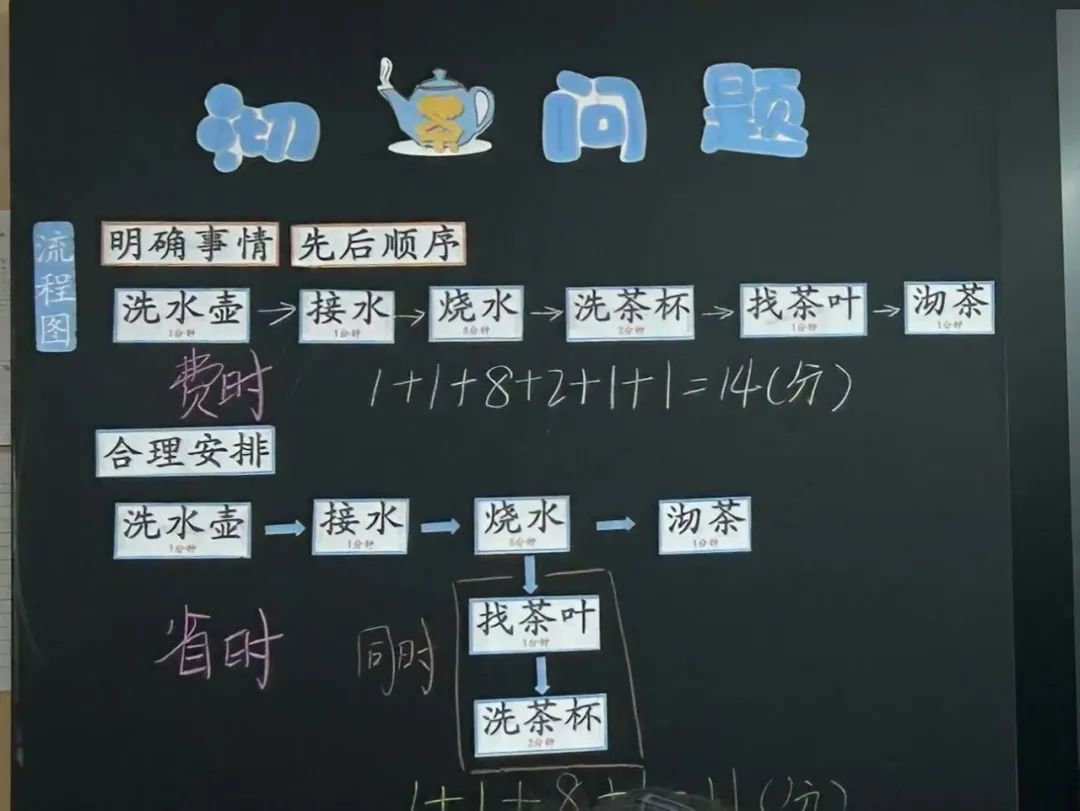 沏茶问题
流程图
明确事情 先后顺序
洗水壶 → 接水 → 烧水 → 洗茶杯 → 找茶叶 → 沏茶
1分钟 1分钟 8分钟 2分钟 1分钟 1分钟
费时 1+1+8+2+1+1=14(分)
合理安排
洗水壶 → 接水 → 烧水 → 沏茶
1分钟 1分钟 8分钟 1分钟
找茶叶
1分钟
省时 同时
洗茶杯
2分钟
1+1+8+